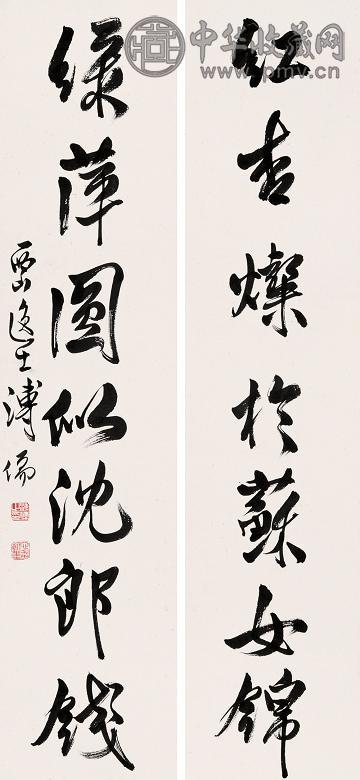 紅杏燦於蘇女錦
綠萍圓似沈郎錢
西山逸士溥儒
中华收藏网
www.pmv.cn